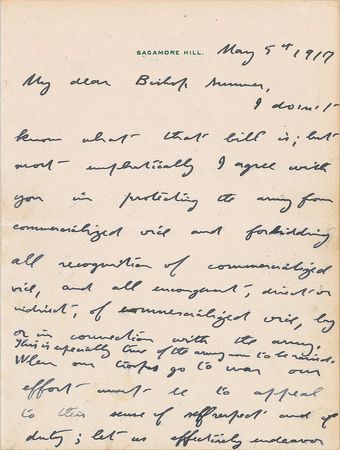 SAGAMORE HILL.
May 5th 1917
My dear Bishop
I don't
know what that bill is; but
most emphatically I agree with
you in protecting the army from
commercialized vice and forbidding
all recognition of commercialized
vice, and all encouragement, direct or
indirect, of commercialized vice, by
or in connection with the army.
This is especially true of the army now to be raised.
When our troops go to war our
effort must be to appeal
to their sense of self respect and of
duty; let us effectively endeavor